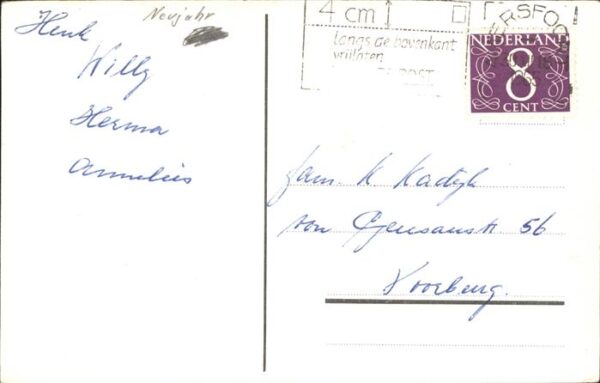 Henk
Willy
Herma
Annelies
Neujahr
4 cm
langs de bovenkant
vrijlaten
POST
ERSFOO
NEDERLAND
8
CENT
fam. K. Kadijk
van 56
Voorburg.